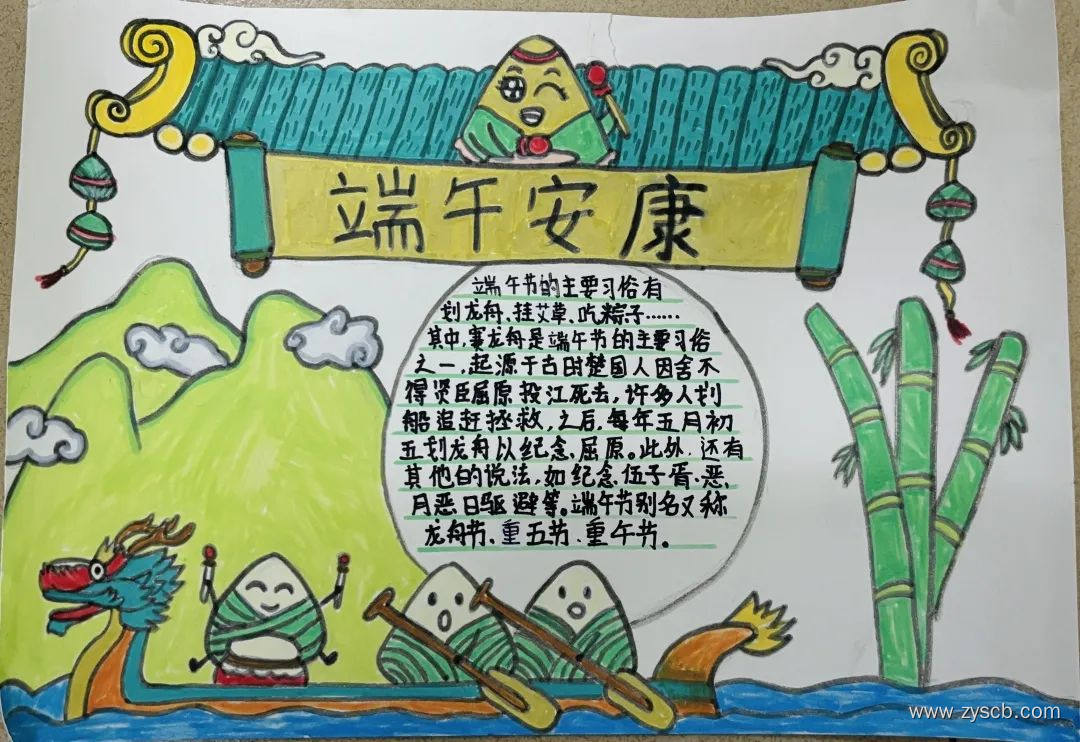 端午安康
端午节的主要习俗有
划龙舟、挂艾草、吃粽子……
其中,赛龙舟是端午节的主要习俗
之一,起源于古时楚国人因舍不
得贤臣屈原投江死去,许多人划
船追赶拯救,之后,每年五月初
五划龙舟以纪念屈原。此外,还有
其他的说法,如纪念伍子胥、恶
月恶日驱避等。端午节别名又称
龙舟节、重五节、重午节。
www.zyscb.com